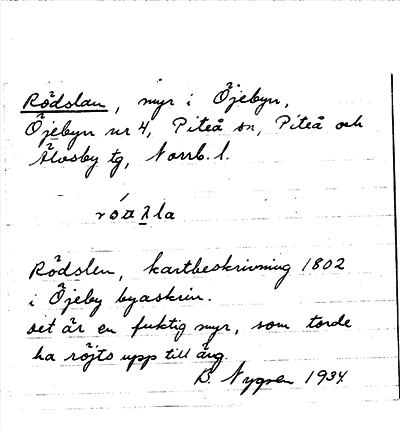 Rödslan, myr i Öjebyn,
Öjebyn nr 4, Piteå sn, Piteå och
Älvsby tg, Norrb. l.
Rödslen, kartbeskrivning 1802
i Öjeby byaskrin.
Det är en fuktig myr, som torde
ha röjts upp till äng.
B. Nygren 1934